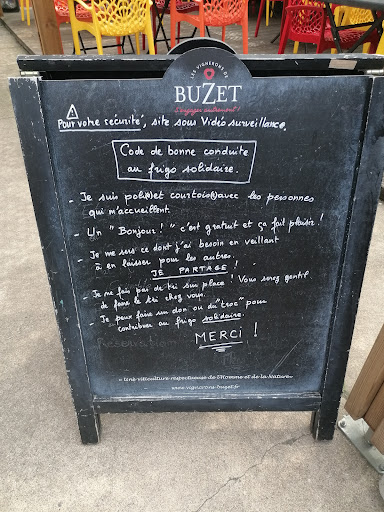 LES VIGNERONS DE
BUZET
Pour votre sécurité, site sous Vidéo surveillance.
Code de bonne conduite
au frigo solidaire.
- Je suis poli(e)et courtois(e)avec les personnes
qui m'accueillent.
- Un "Bonjour!" c'est gratuit et ça fait plaisir!
- Je me sers ce dont j'ai besoin en veillant
à en laisser pour les autres.
JE PARTAGE!
- Je ne fais pas de tri sur place! Vous serez gentil
de faire le tri chez vous.
- Je peux faire un don ou du "troc" pour
contribuer au frigo solidaire.
MERCI!
« Une viticulture respectueuse de l'Homme et de la Nature»
www.vignerons-buzet.fr